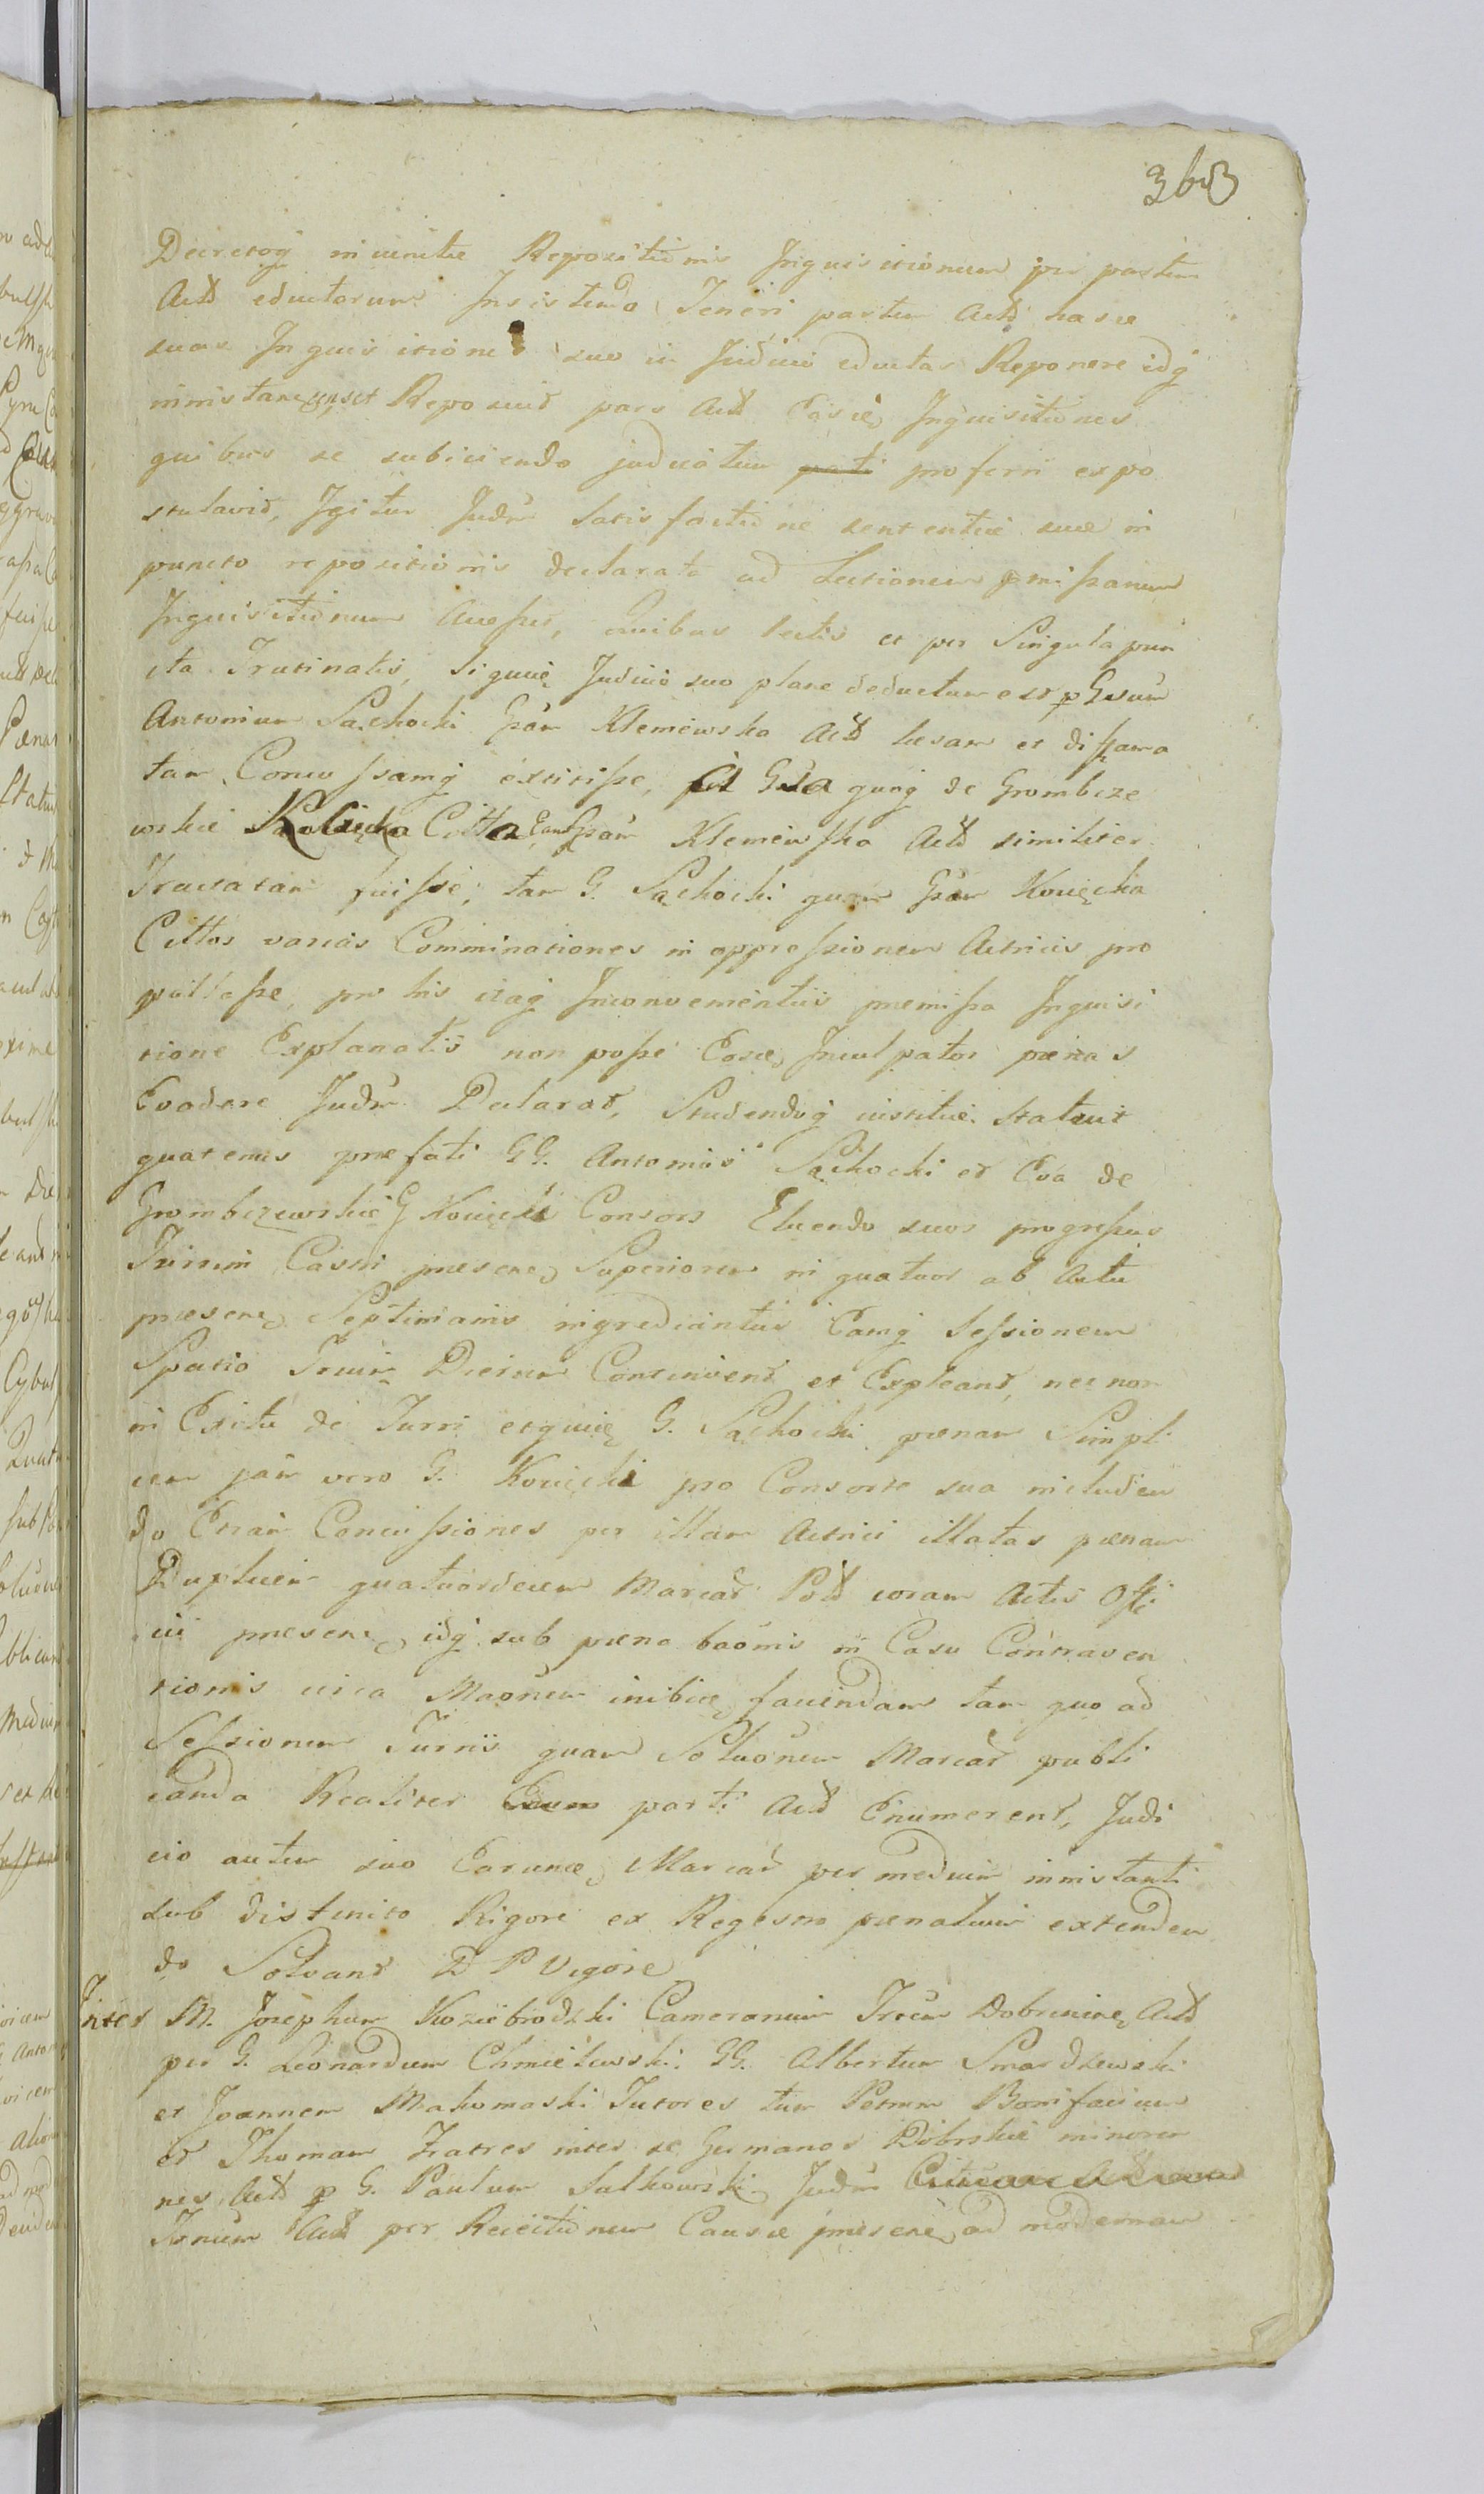 363
Decretoq in vim Repositionis Inquisitionum per partem
Actt eductarum Insistendo Teneri partem Actt hasce
suas Inquisitiones suo in Judicio eductas Reponere idq
in instanc Reposuit pars Actt Easce Inquisitiones
quibus se subiiciendo judicatum proferri expo
stulavit, Igitur Judm Satisfactione sententiæ suæ in
puncto repositionis declarata ad Lectionem pmissarum
Inquisitionum Accessit, Quibus lectis et per Singula pun
cta Trutinatis, Siquid Judicio suo plane deductum est p Gsum
Antonium Sąchocki Gsam Klemewska Actt læsam et diffama
tam Concussamq extitisse, Gsa quoq de Grombcze
wskie Kocięcka Citta Gsam Klemewska Actt similiter
Tractatam fuisse, tam G. Sąchocki quam Gsam Kocięcka
Cittos varias Comminationes in oppressionem Actricis pro
tulisse, pro his itaq Inconvenientiis præmissa Inquisi
tione Explanatis non posse Eosce Inculpatos pænas
Evadere Judm Declarat, Studendoq iustitiæ Statuit
quatenus præfati GG. Antonius Sąchocki et Eva de
Grombczewskie G Kocięcki Consors Eluendo suos progressus
Turrim Castri præsenc Superiorem in quatuor ab Actu
præsenc Septimanis ingrediantur Eamq Sessionem
Spatio Dierum Contineant et Expleant, nec non
in Exitu de Turri G. Sąchocki pænam Simpli
cem jam vero G. Kocięcki pro Consorte sua includen
do Etiam Concussiones per illam Actrici illatas pænam
Duplicem quatuordecim Marcar Pott coram Actis Offi
cii præsenc, idq sub pæna baonis in Casu Contraven
tionis circa Maonem inibice faciendam tam quo ad
Sessionem Turris quam Soluonem Marcar publi
canda Realiter parti Actt Enumerent, Judi
cio autem suo Earunce Marcar per medium in instanti
sub distincto Rigore ex Regestro pænalium extenden
do Solvant D P Vigore
Inter M. Josephum Koziebrodzki Camerarium Trrum Dobrinen Actt
per G. Leonardum Chmielewski GG. Albertum Smardzewski
et Joannem Makomaski Tutores tum Petrum Bonifacium
et Thomam Fratres inter se Germanos Dobrskie minoren
nes Actt p G. Paulum Sulkowski Judm
Actt per Receitionem Causæ præsenc ad modernam